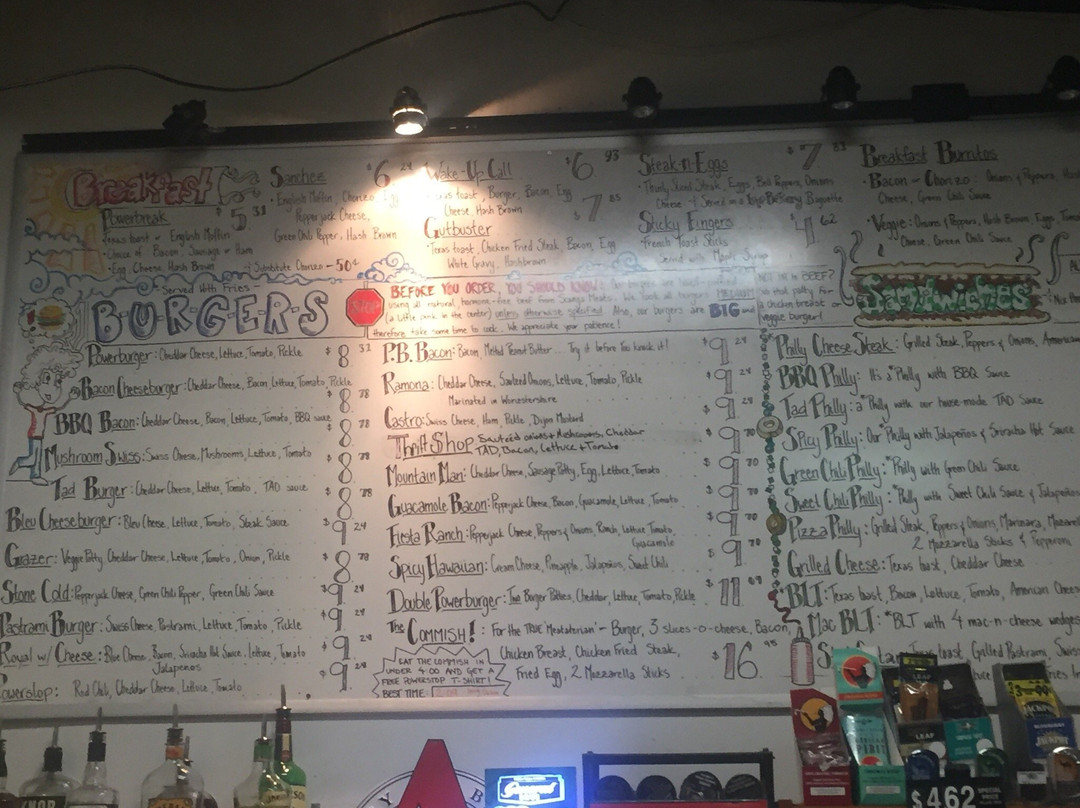 Breakfast
Powerbreak $5 31
Texas toast or English Muffin
Choice of Bacon, Sausage or Ham
Egg, Cheese, Hash Brown
(Substitute Chorizo - 50¢)
Sanchez $6
English Muffin, Chorizo, Egg
Pepperjack Cheese,
Green Chili Pepper, Hash Brown
Wake-Up Call $6 93
Texas toast, Burger, Bacon, Egg
Cheese, Hash Brown
Gutbuster $7 85
Texas toast, Chicken Fried Steak, Bacon, Egg
White Gravy, Hashbrown
Steak-n-Eggs $7 85
Thinly Sliced Steak, Eggs, Bell Peppers, Onions
Cheese & Served on a
Baguette
Sticky Fingers $4 62
French Toast Sticks
Served with Maple Syrup
Breakfast Burritos
Bacon or Chorizo: Onions & Peppers,
Cheese, Green Chili Sauce
Veggie: Onions & Peppers, Hash Brown, Eggs,
Cheese, Green Chili Sauce
Served With Fries
BURGERS
STOP
BEFORE YOU ORDER, YOU SHOULD KNOW: Our burgers are
using all natural, hormone-free beef from Meats. We cook all burgers MEDIUM
(a little pink in the center) unless otherwise specified. Also, our burgers are BIG and
therefore take some time to cook. We appreciate your patience!
BEEF?
patty for
a chicken breast
veggie burger!
Sandwiches
Powerburger: Cheddar Cheese, Lettuce, Tomato, Pickle $8 32
Bacon Cheeseburger: Cheddar Cheese, Bacon, Lettuce, Tomato, Pickle $8 78
BBQ Bacon: Cheddar Cheese, Bacon, Lettuce, Tomato, BBQ sauce $8 78
Mushroom Swiss: Swiss Cheese, Mushrooms, Lettuce, Tomato $8 78
Tad Burger: Cheddar Cheese, Lettuce, Tomato, TAD sauce $8 78
Bleu Cheeseburger: Bleu Cheese, Lettuce, Tomato, Steak Sauce $9 24
Grazer: Veggie Patty, Cheddar Cheese, Lettuce, Tomato, Onion, Pickle $8 78
Stone Cold: Pepperjack Cheese, Green Chili Pepper, Green Chili Sauce $9 24
Pastrami Burger: Swiss Cheese, Pastrami, Lettuce, Tomato, Pickle $9 24
Royal w/ Cheese: Bleu Cheese, Bacon, Sriracha Hot Sauce, Lettuce, Tomato $9 24
Jalapenos
Powerslop: Red Chili, Cheddar Cheese, Lettuce, Tomato $9 24
P.B. Bacon: Bacon, Melted Peanut Butter... Try it before You knock it! $9 24
Ramona: Cheddar Cheese, Sauteed Onions, Lettuce, Tomato, Pickle $9 24
Marinated in Worcestershire
Castro: Swiss Cheese, Ham, Pickle, Dijon Mustard $9 24
Thrift Shop Sauteed onions & Mushrooms, Cheddar $9 70
TAD, Bacon, Lettuce & Tomato
Mountain Man: Cheddar Cheese, Sausage Patty, Egg, Lettuce, Tomato $9 70
Guacamole Bacon: Pepperjack Cheese, Bacon, Guacamole, Lettuce, Tomato $9 70
Fiesta Ranch: Pepperjack Cheese, Peppers & Onions, Ranch, Lettuce, Tomato $9 70
Guacamole
Spicy Hawaiian: Cream Cheese, Pineapple, Jalapenos, Sweet Chili
Double Powerburger: Two Burger Patties, Cheddar, Lettuce, Tomato, Pickle $11
The COMMISH!: For the TRUE "Meatatarian" - Burger, 3 slices-o-cheese, Bacon, $16 95
Chicken Breast, Chicken Fried Steak,
Fried Egg, 2 Mozzarella Sticks
EAT THE COMMISH IN
UNDER 4:00 AND GET A
FREE POWERSTOP T-SHIRT!
BEST TIME
Philly Cheese Steak: Grilled Steak, Peppers & Onions, American
BBQ Philly: It's a *Philly with BBQ Sauce
Tad Philly: a *Philly with our house-made TAD sauce
Spicy Philly: Our *Philly with Jalapeños & Sriracha Hot Sauce
Green Chili Philly: *Philly with Green Chili Sauce
Sweet Chili Philly: *Philly with Sweet Chili Sauce & Jalapeños
Pizza Philly: Grilled Steak, Peppers & Onions, Marinara,
2 Mozzarella Sticks & Pepperoni
Grilled Cheese: Texas toast, Cheddar Cheese
BLT: Texas toast, Bacon, Lettuce, Tomato, American Cheese
Mac BLT: *BLT with 4 mac-n-cheese wedges
Texas toast, Grilled Pastrami, Swiss
LEAF
LEAF
JACKPOT
$4.62
SPECIAL
PRICE